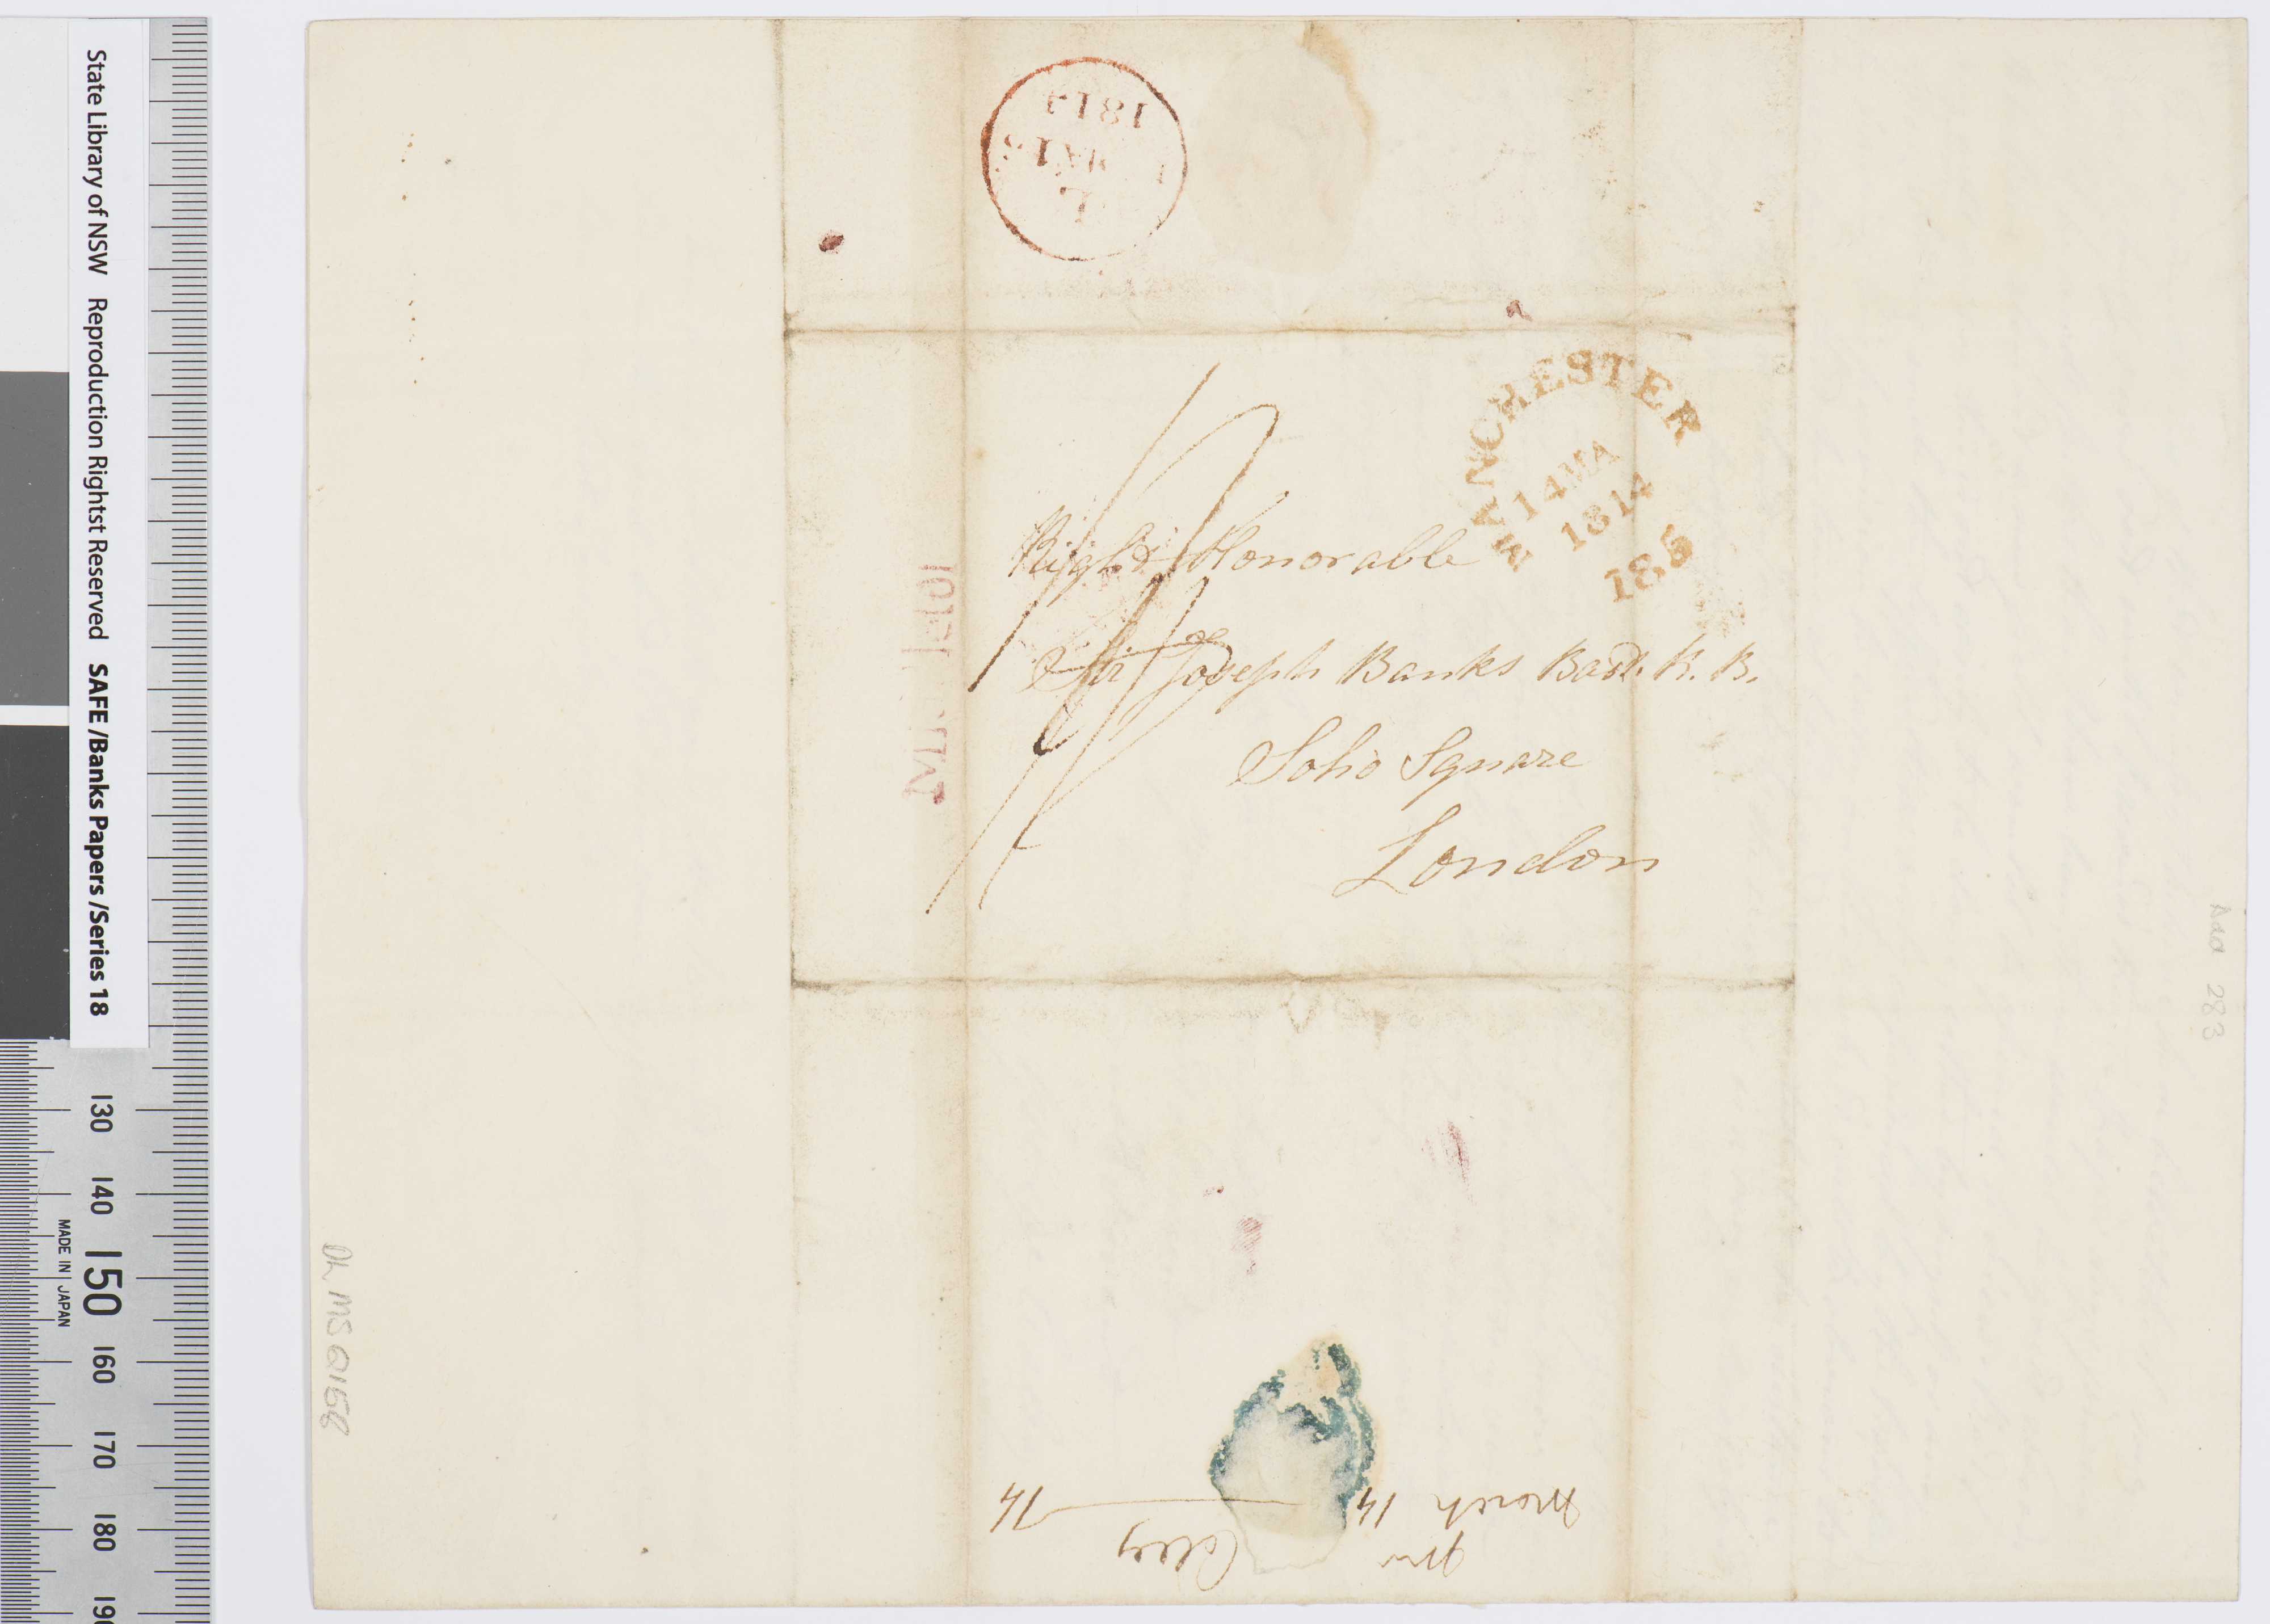 State Library of NSW Reproduction Rightst Reserved SAFE /Banks Papers /Series 18
130 140 150 160 170 180 190
MADE IN JAPAN
1814
MANCHESTER
14 MA
1814
185
Right Honorable
Sir Joseph Banks Bart. K. B.
Soho Square
London
Add 283
DL MS Q158
March 14
14